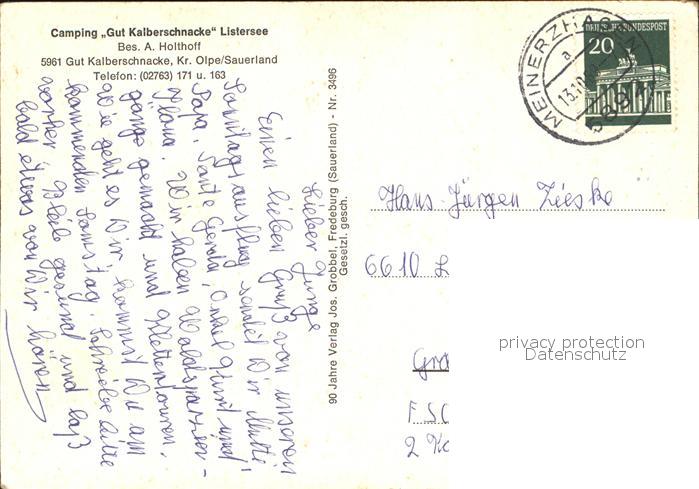 Camping „Gut Kalberschnacke" Listersee
Bes. A. Holthoff
5961 Gut Kalberschnacke, Kr. Olpe/Sauerland
Telefon: (02763) 171 u. 163
Lieber Junge
Einen lieben Gruß von unserem
Sonntagsausflug sendet Dir Mutti
Papa, Tante Gerda, Onkel Kurt und
Wir haben Waldspazier-
gänge gemacht und Klettertouren.
Wie geht es Dir, kommst Du am
kommenden Samstag. Schreibe bitte
vorher. Bleib gesund und laß
bald etwas von Dir hören
90 Jahre Verlag Jos. Grobbel, Fredeburg (Sauerland) - Nr. 3496
Gesetzl. gesch.
DEUTSCHE BUNDESPOST
20
MEINERZHAGEN
a
Hans-Jürgen Zieske
6610 L
privacy protection
Datenschutz
Gra
F SC
2 Ko